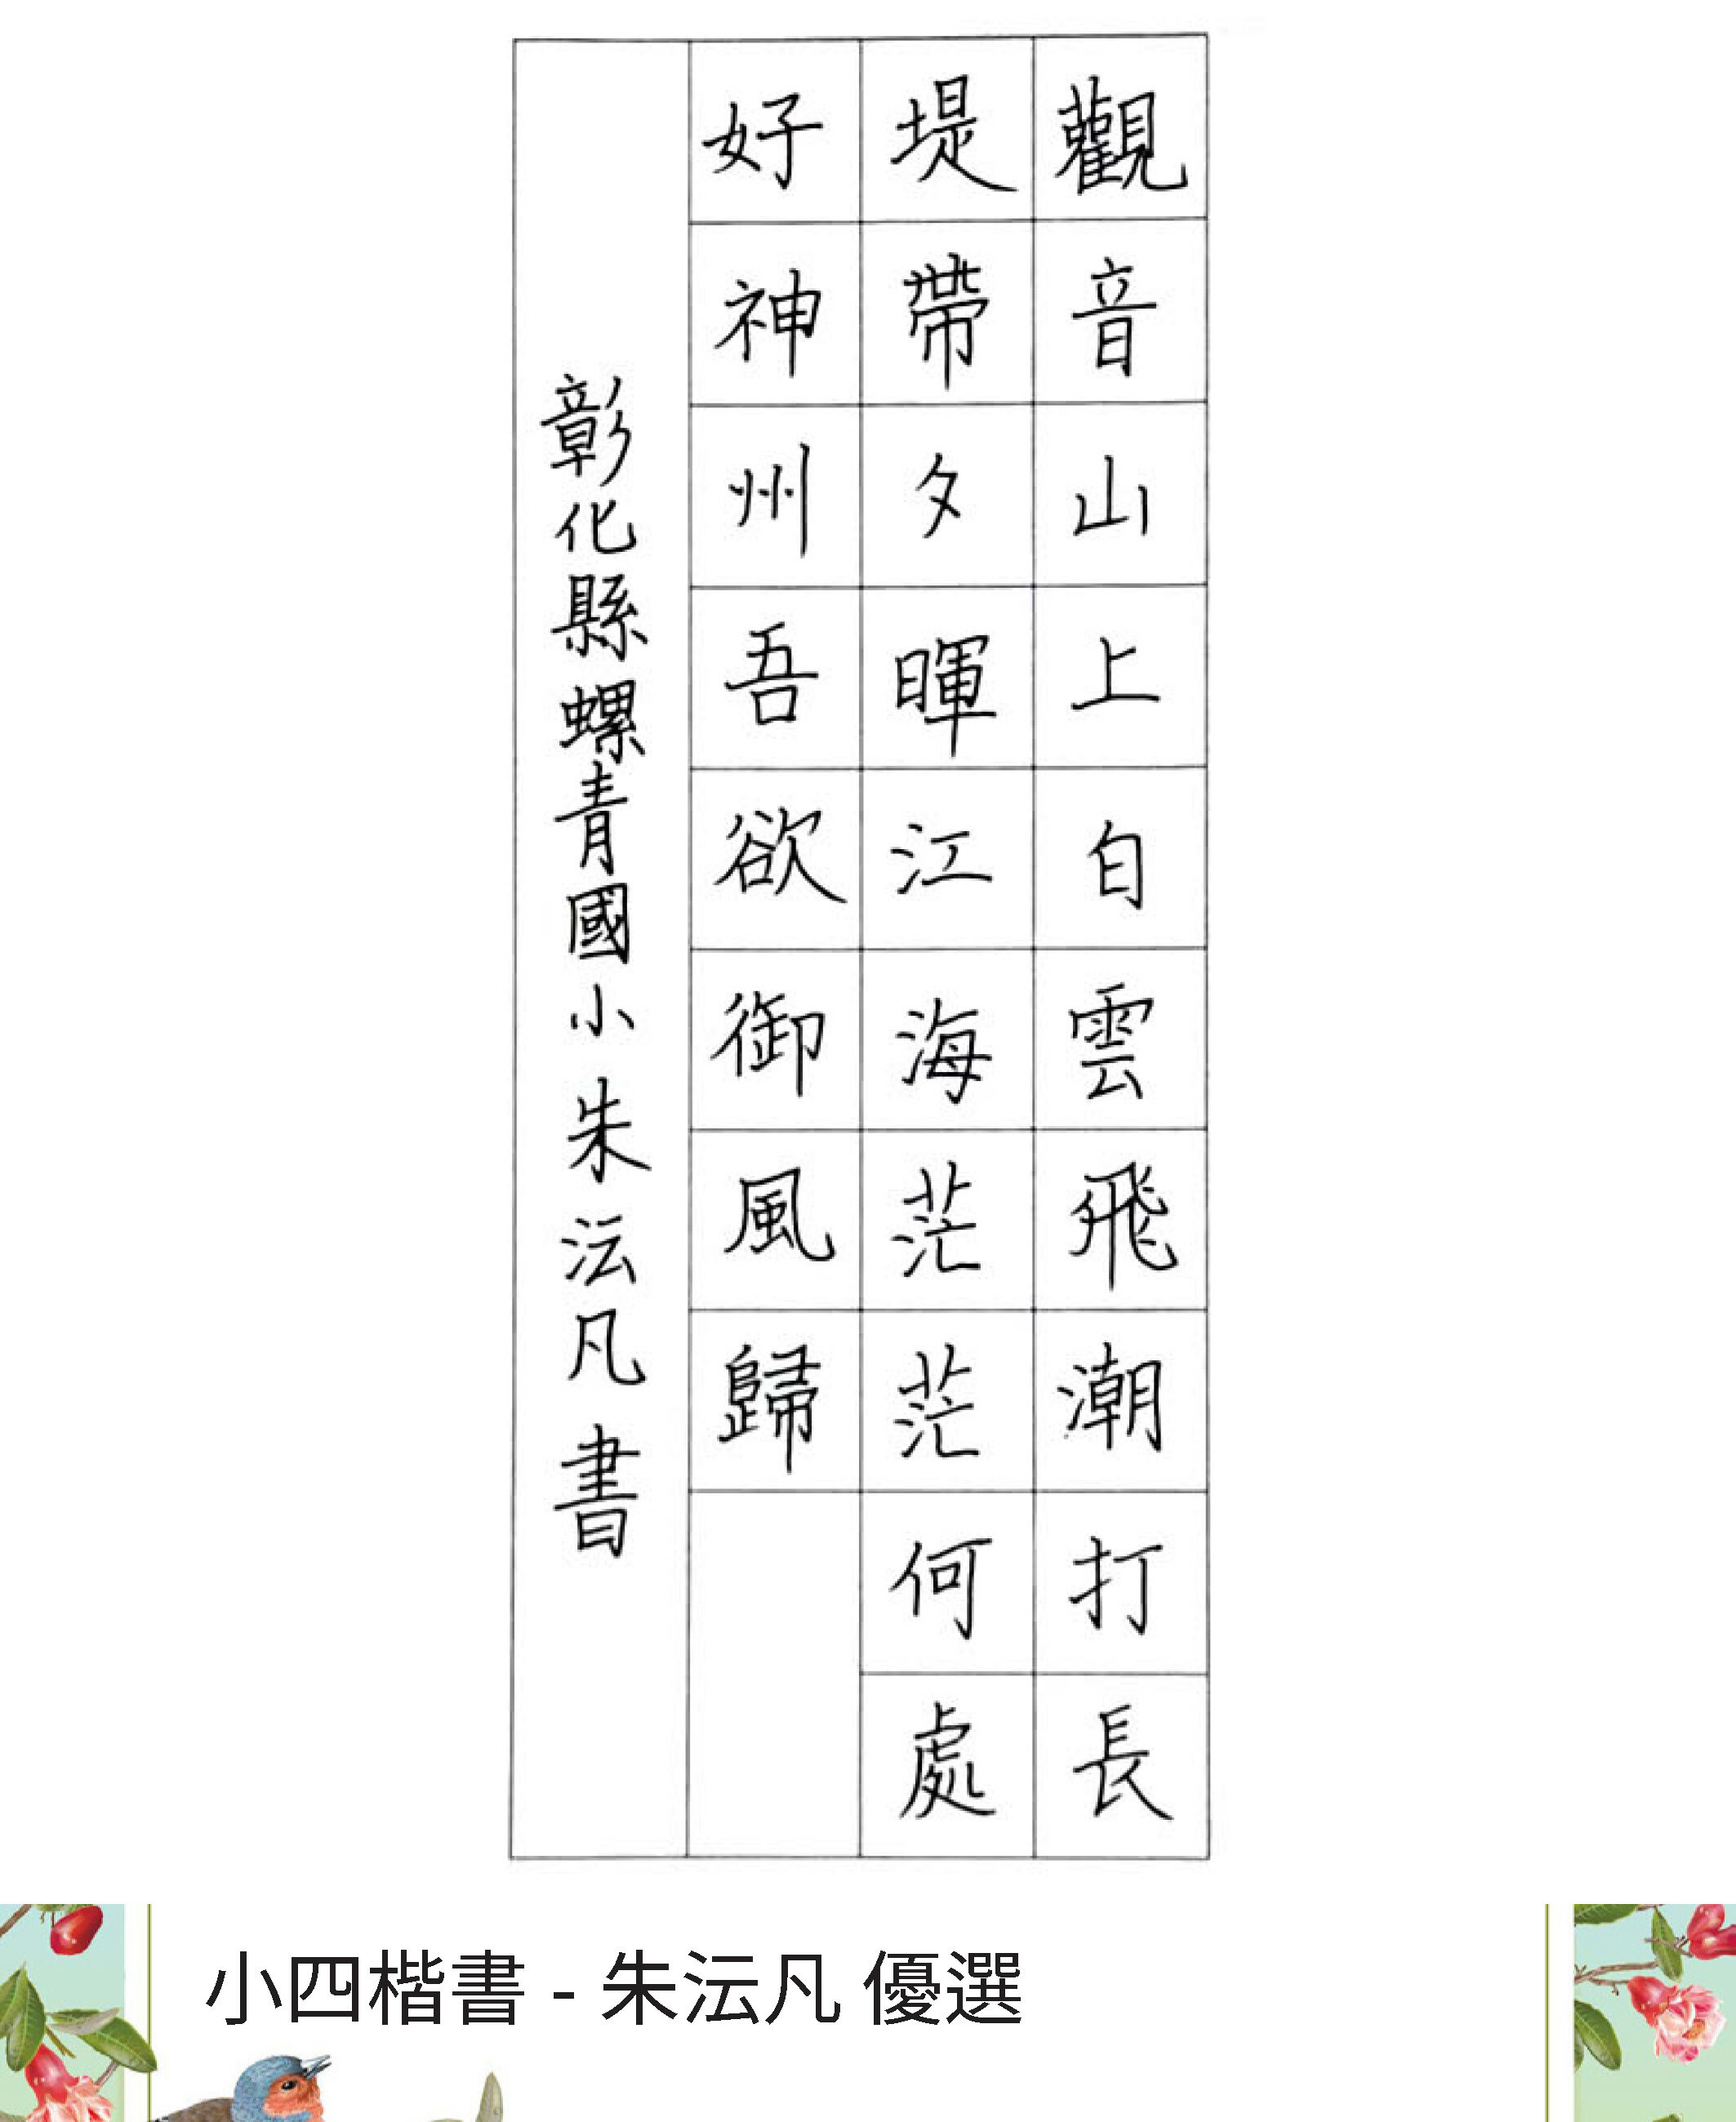 觀音山上白雲飛潮打長
堤帶夕暉江海茫茫何處
好神州吾欲御風歸
彰化縣螺青國小朱沄凡書
小四楷書 - 朱沄凡 優選